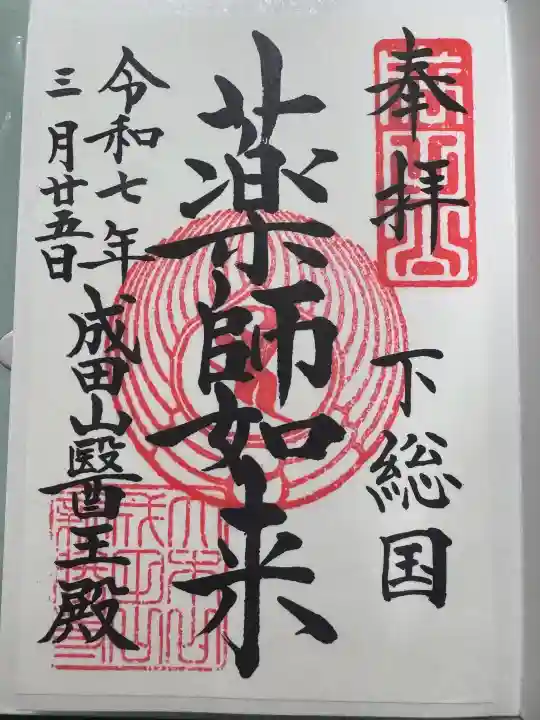 奉拝
下総国
薬師如来
令和七年
三月廿五日
成田山醫王殿